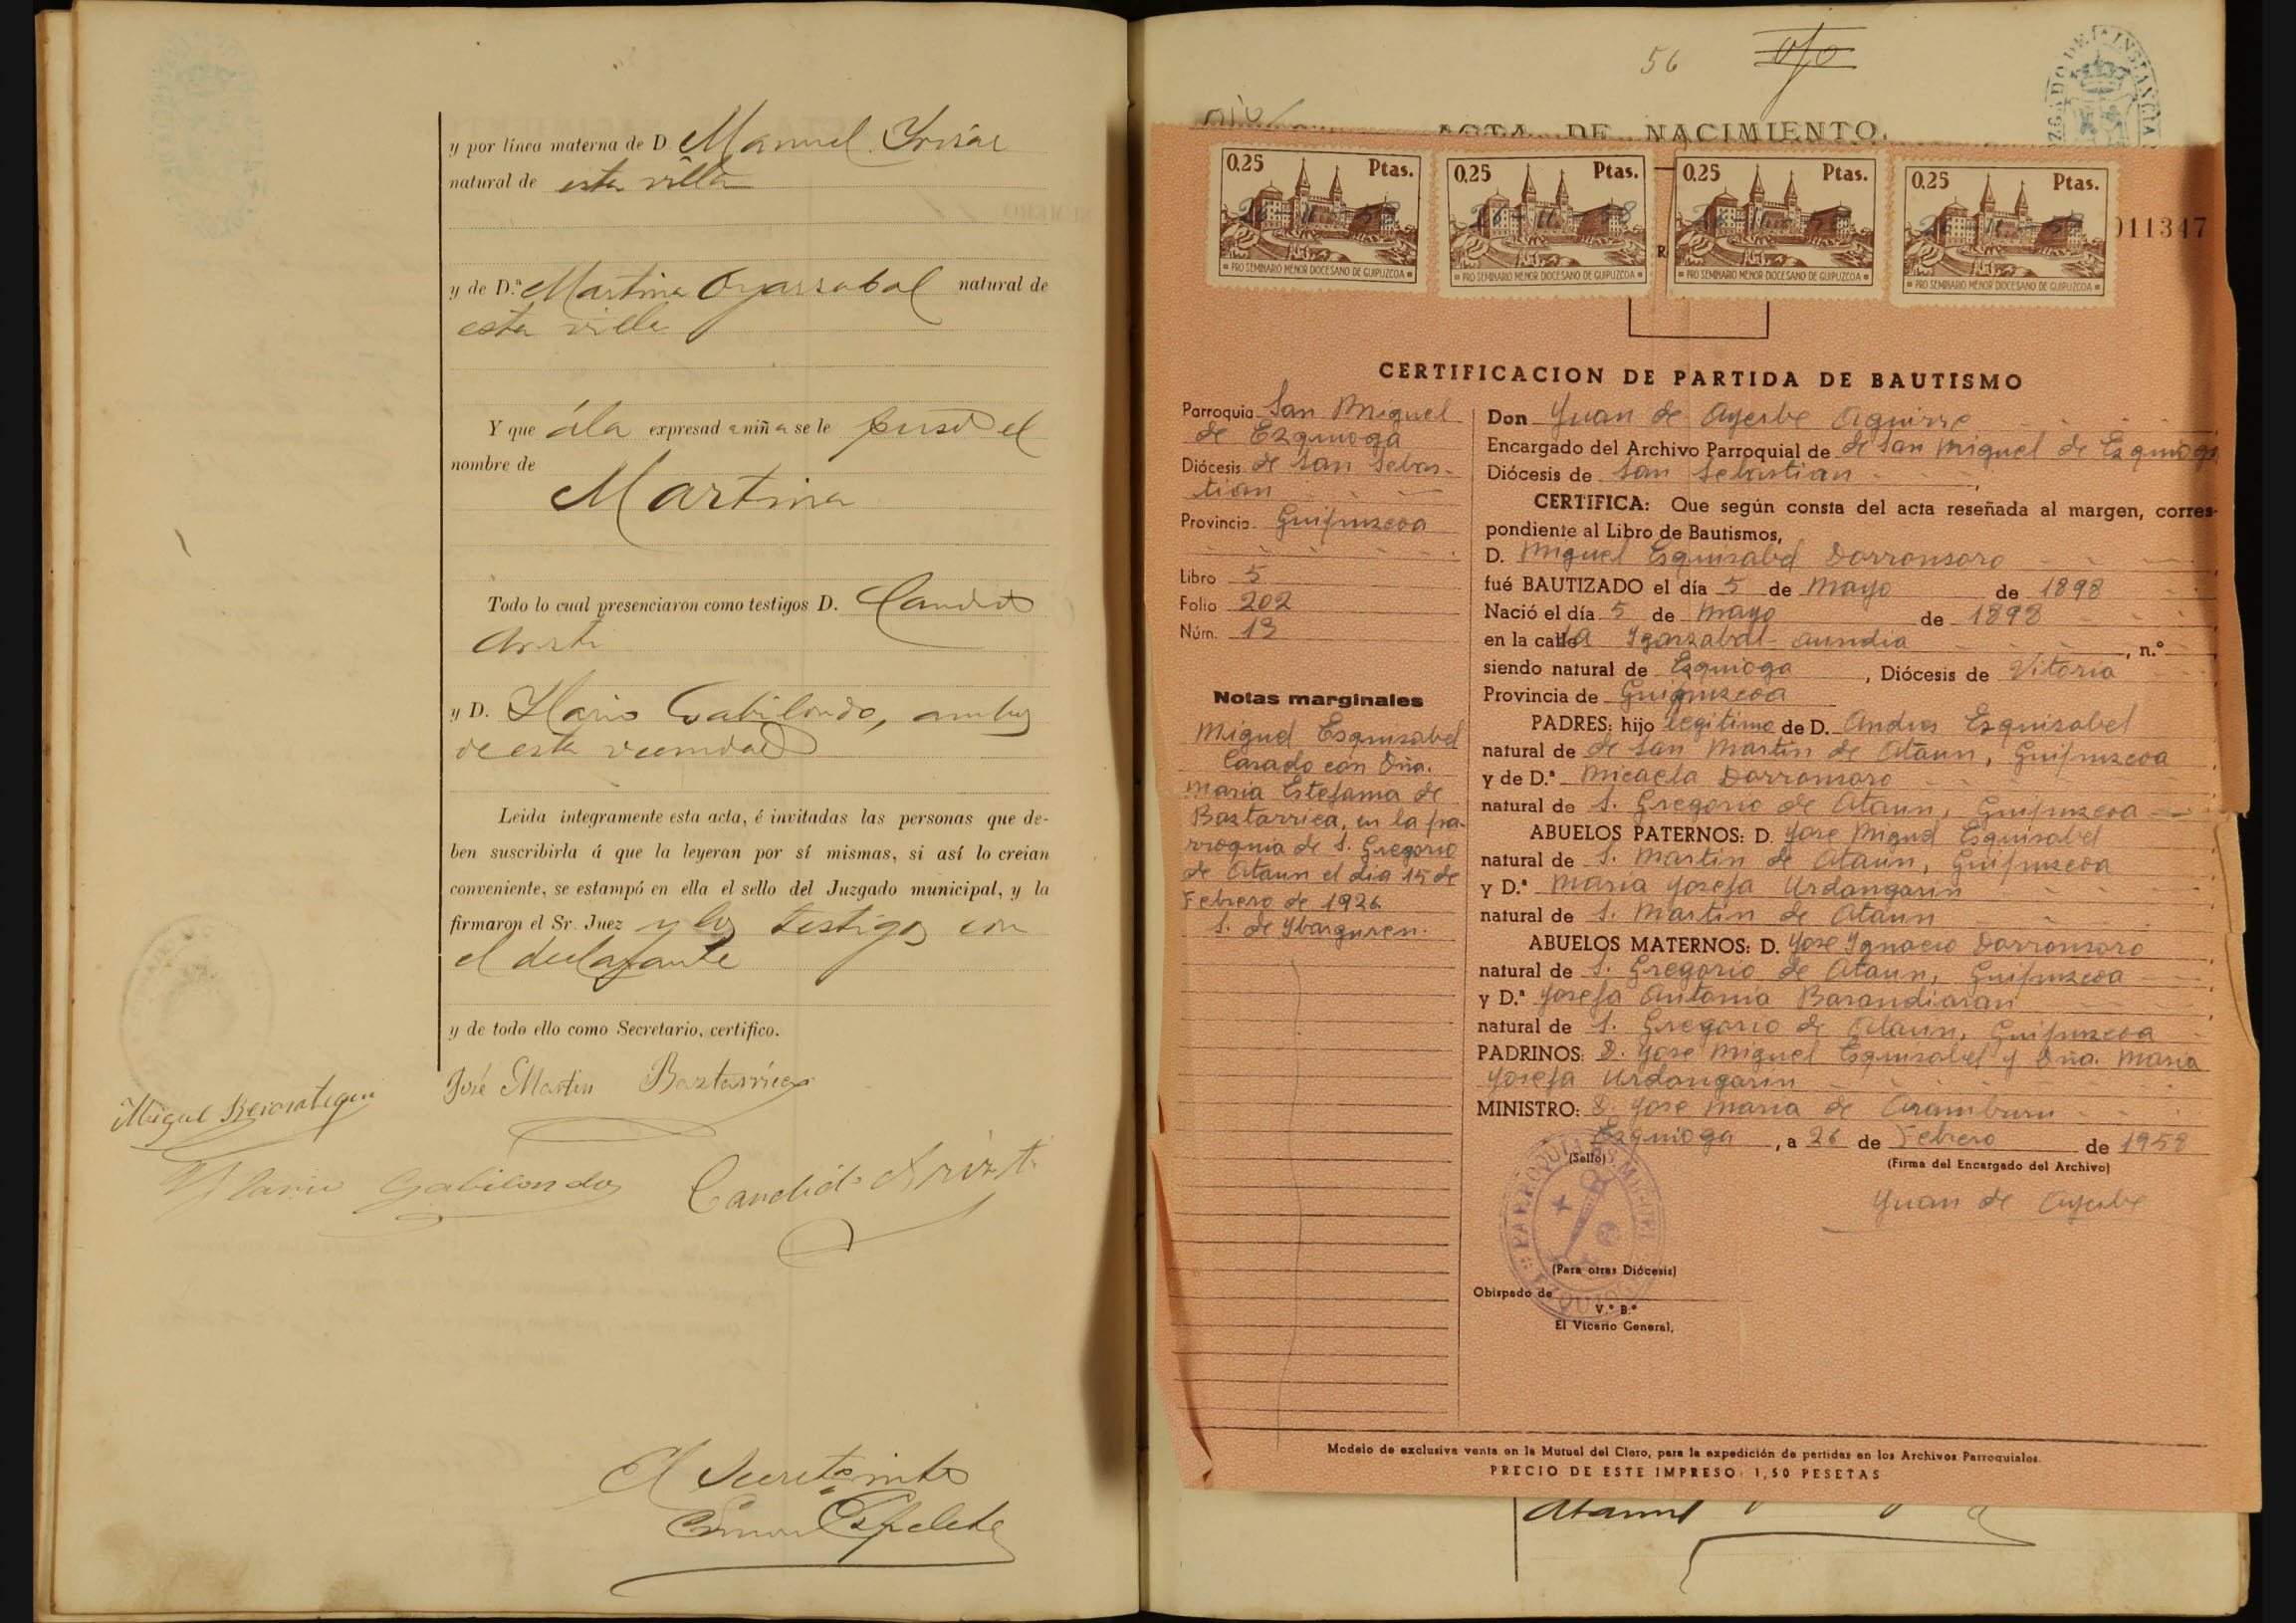 y por línea materna de D Manuel Yriiar
natural de esta villa
y de D.ª Martina Oyarzabal natural de
esta villa
Y que á la expresad a niñ a se le puso el
nombre de
Martina
Todo lo cual presenciaron como testigos D. Candido
Arizti
y D. Ylario Gabilondo, ambos
de esta vecindad
Leida integramente esta acta, é invitadas las personas que de-
ben suscribirla á que la leyeran por sí mismas, si así lo creian
conveniente, se estampó en ella el sello del Juzgado municipal, y la
firmaron el Sr. Juez y los testigos con
el declarante
y de todo ello como Secretario, certifico.
José Martin Baztarrica
Miguel
Ylario Gabilondo
Candido Arizti
El Secretario
Espeleta
56
ACTA DE NACIMIENTO.
JUZGADO DE 1ª INSTANCIA
0,25 Ptas.
26-II-58
PRO SEMINARIO MENOR DIOCESANO DE GUIPUZCOA
0,25 Ptas.
26-II-58
PRO SEMINARIO MENOR DIOCESANO DE GUIPUZCOA
0,25 Ptas.
26-II-58
PRO SEMINARIO MENOR DIOCESANO DE GUIPUZCOA
0,25 Ptas.
26-II-58
PRO SEMINARIO MENOR DIOCESANO DE GUIPUZCOA
011347
CERTIFICACION DE PARTIDA DE BAUTISMO
Parroquia San Miguel
de Ezquioga
Diócesis de San Sebas-
tian
Provincia Guipuzcoa
Libro 5
Folio 202
Núm. 13
Notas marginales
Miguel Esquisabel
Casado con Dña.
Maria Estefania de
Baztarrica, en la pa-
rroquia de S. Gregorio
de Ataun el dia 15 de
Febrero de 1926.
S. de Ybarguren.
Don Juan de Ayerbe Aguirre
Encargado del Archivo Parroquial de de San Miguel de Ezquioga
Diócesis de San Sebastian
CERTIFICA: Que según consta del acta reseñada al margen, corres-
pondiente al Libro de Bautismos,
D. Miguel Esquisabel Dorronsoro
fué BAUTIZADO el día 5 de Mayo de 1898
Nació el día 5 de Mayo de 1898
en la calle Ygarzabal-aundia, n.º
siendo natural de Ezquioga, Diócesis de Vitoria
Provincia de Guipuzcoa
PADRES: hijo legitimo de D. Andres Esquisabel
natural de de San Martin de Ataun, Guipuzcoa
y de D.ª Micaela Dorronsoro
natural de S. Gregorio de Ataun, Guipuzcoa
ABUELOS PATERNOS: D. Jose Miguel Esquisabel
natural de S. Martin de Ataun, Guipuzcoa
y D.ª Maria Josefa Urdangarin
natural de S. Martin de Ataun
ABUELOS MATERNOS: D. Jose Ygnacio Dorronsoro
natural de S. Gregorio de Ataun, Guipuzcoa
y D.ª Josefa Antonia Barandiaran
natural de S. Gregorio de Ataun, Guipuzcoa
PADRINOS: D. Jose Miguel Esquisabel y Dña. Maria
Josefa Urdangarin
MINISTRO: D. Jose Maria de Aramburu
Ezquioga, a 26 de Febrero de 1958
(Sello)
(Firma del Encargado del Archivo)
Juan de Ayerbe
(Para otras Diócesis)
Obispado de
V.º B.º
El Vicario General,
Modelo de exclusiva venta en la Mutual del Clero, para la expedición de partidas en los Archivos Parroquiales.
PRECIO DE ESTE IMPRESO: 1,50 PESETAS